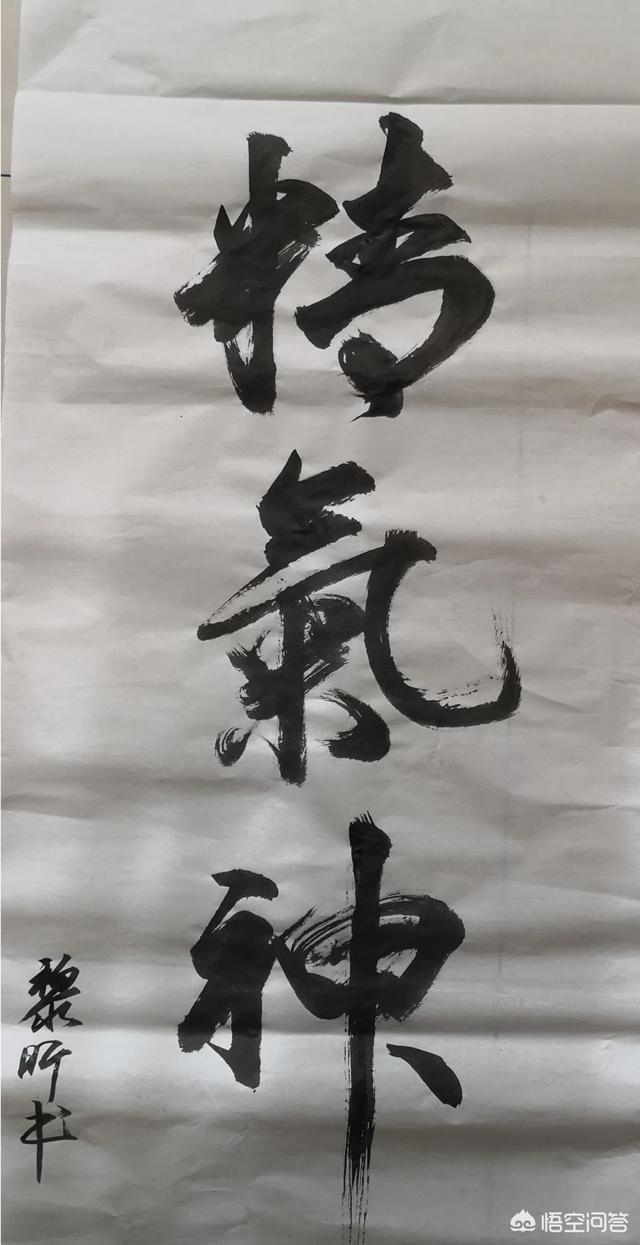 精氣神
黎昕书
悟空问答